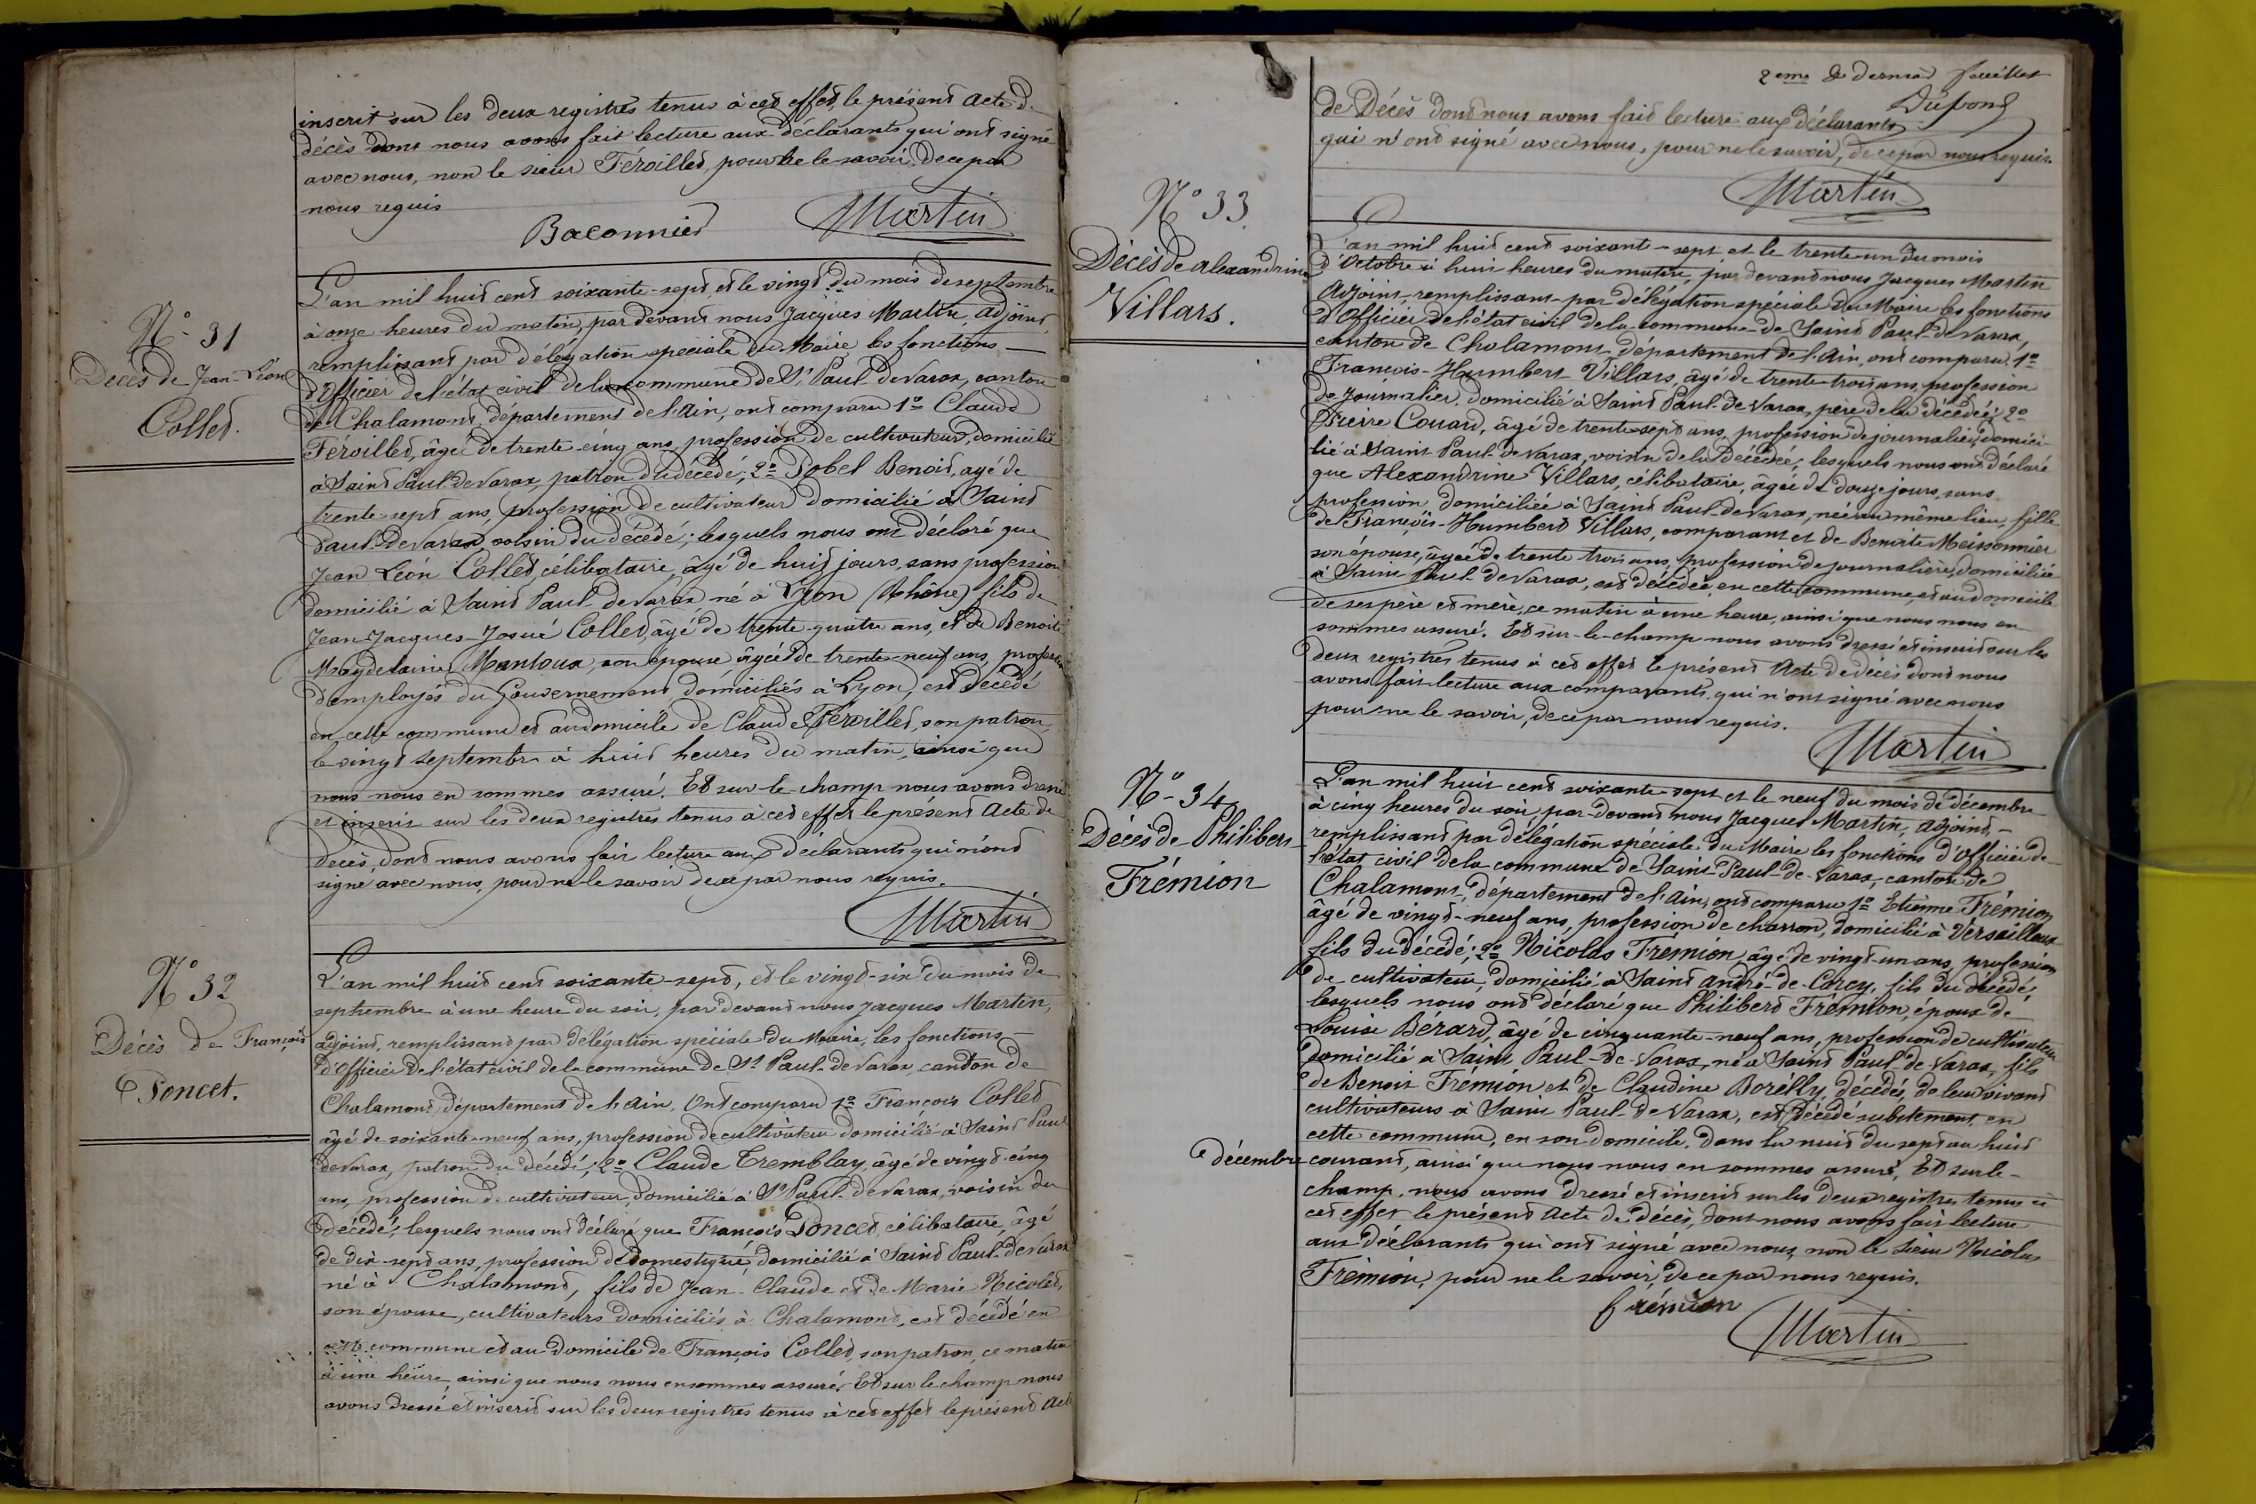 inscrit sur les deux registres tenus à cet effet, le présent Acte de
décès dont nous avons fait lecture aux déclarants qui ont signé
avec nous, non le sieur Féroillet, pour ne le savoir, de ce par
nous requis
Baconnier Martin
N° 31
Décès de Jean-Léon
Collet.
L'an mil huit cent soixante-sept, et le vingt du mois de septembre
à onze heures du matin, par devant nous Jacques Martin, adjoint,
remplissant par délégation spéciale du Maire les fonctions
d'Officier de l'état civil de la commune de St Paul de Varax, canton
de Chalamont, département de l'Ain, ont comparu 1° Claude
Féroillet, âgé de trente-cinq ans, profession de cultivateur, domicilié
à Saint Paul de Varax, patron du décédé; 2° Pobel Benoit, agé de
trente-sept ans, profession de cultivateur domicilié à Saint
Paul de Varax voisin du décédé; lesquels nous ont déclaré que
Jean Léon Collet, célibataire, âgé de huit jours, sans profession
domicilié à Saint Paul de Varax né à Lyon (Rhône) fils de
Jean-Jacques-Josué Collet, âgé de trente-quatre ans, et de Benoite
Magdelaine Mantoux, son épouse âgée de trente-neuf ans, profession
d'employés du Gouvernement, domiciliés à Lyon, est décédé
en cette commune et au domicile de Claude Féroillet, son patron,
le vingt septembre à huit heures du matin, ainsi que
nous nous en sommes assuré. Et sur-le-champ nous avons dressé
et inscrit sur les deux registres tenus à cet effet le présent Acte de
Décès, dont nous avons fait lecture aux déclarants qui n'ont
signé avec nous, pour ne le savoir de ce par nous requis.
Martin
N° 32
Décès de François
Poncet.
L'an mil huit cent soixante-sept, et le vingt-six du mois de
septembre à une heure du soir, par devant nous Jacques Martin,
adjoint, remplissant par délégation spéciale du Maire, les fonctions
d'Officier de l'état civil de la commune de St Paul de Varax canton de
Chalamont, département de l'Ain, Ont comparu 1° François Collet
âgé de soixante-neuf ans, profession de cultivateur domicilié à Saint Paul
de Varax, patron du décédé; 2° Claude Tremblay, âgé de vingt-cinq
ans, profession de cultivateur, domicilié à St Paul de Varax, voisin du
décédé; lesquels nous ont déclaré que François Poncet, célibataire, âgé
de dix-sept ans, profession de domestique, domicilié à Saint Paul de Varax
né à Chalamont, fils de Jean-Claude et de Marie Nicolet,
son épouse, cultivateurs domiciliés à Chalamont, est décédé en
cette commune et au domicile de François Collet, son patron, ce matin
à une heure, ainsi que nous nous en sommes assuré. Et sur le champ nous
avons dressé et inscrit sur les deux registres tenus à cet effet le présent Acte
2eme & dernier feuillet
Dupont
de Décès dont nous avons fait lecture aux déclarants
qui n'ont signé avec nous, pour ne le savoir, de ce par nous requis.
Martin
N° 33.
Décès de Alexandrine
Villars.
L'an mil huit cent soixante-sept et le trente-un du mois
d'Octobre à huit heures du matin, par devant nous Jacques Martin
Adjoint, remplissant par délégation spéciale du Maire les fonctions
d'Officier de l'état civil de la commune de Saint Paul de Varax,
canton de Chalamont, département de l'Ain, ont comparu 1°
François-Humbert Villars, âgé de trente-trois ans, profession
de Journalier, domicilié à Saint Paul-de-Varax, père de la décédée; 2°
Pierre Couard, âgé de trente-sept ans, profession de journalier, domici-
lié à Saint Paul de Varax, voisin de la décédée; lesquels nous ont déclaré
que Alexandrine Villars, célibataire, âgée de douze jours, sans
profession, domiciliée à Saint Paul de Varax, née au même lieu, fille
de François-Humbert Villars, comparant et de Benoite Meissonnier
son épouse, âgée de trente trois ans, profession de journalière, domiciliée
à Saint Paul de Varax, est décédée, en cette commune, et au domicile
de ses père et mère, ce matin à une heure, ainsi que nous nous en
sommes assuré. Et sur-le-champ nous avons dressé et inscrit sur les
deux registres tenus à cet effet le présent Acte de décès dont nous
avons fait lecture aux comparants qui n'ont signé avec nous
pour ne le savoir, de ce par nous requis.
Martin
N° 34
Décès de Philibert
Frémion
L'an mil huit cent soixante-sept et le neuf du mois de décembre
à cinq heures du soir, par-devant nous Jacques Martin, adjoint,
remplissant par délégation spéciale du Maire les fonctions d'Officier de
l'état civil de la commune de Saint-Paul-de-Varax, canton de
Chalamont, département de l'Ain, ont comparu 1° Etienne Frémion
âgé de vingt-neuf ans, profession de charron, domicilié à Versailleux
fils du décédé; 2° Nicolas Frémion, âgé de vingt-un ans, profession
de cultivateur, domicilié à Saint André-de-Corcy, fils du décédé,
lesquels nous ont déclaré que Philibert Frémion, époux de
Louise Bérard, âgé de cinquante-neuf ans, profession de cultivateur
domicilié à Saint Paul-de-Varax, né à Saint Paul-de-Varax, fils
de Benoit Frémion et de Claudine Borelly, décédés, de leur vivant
cultivateurs à Saint Paul de Varax, est décédé subitement, en
cette commune, en son domicile, dans la nuit du sept au huit
décembre courant, ainsi que nous nous en sommes assuré, Et sur le
champ, nous avons dressé et inscrit sur les deux registres tenus à
cet effet le présent Acte de décès, dont nous avons fait lecture
aux déclarants qui ont signé avec nous, non le Sieur Nicolas
Frémion, pour ne le savoir, de ce par nous requis.
frémion
Martin